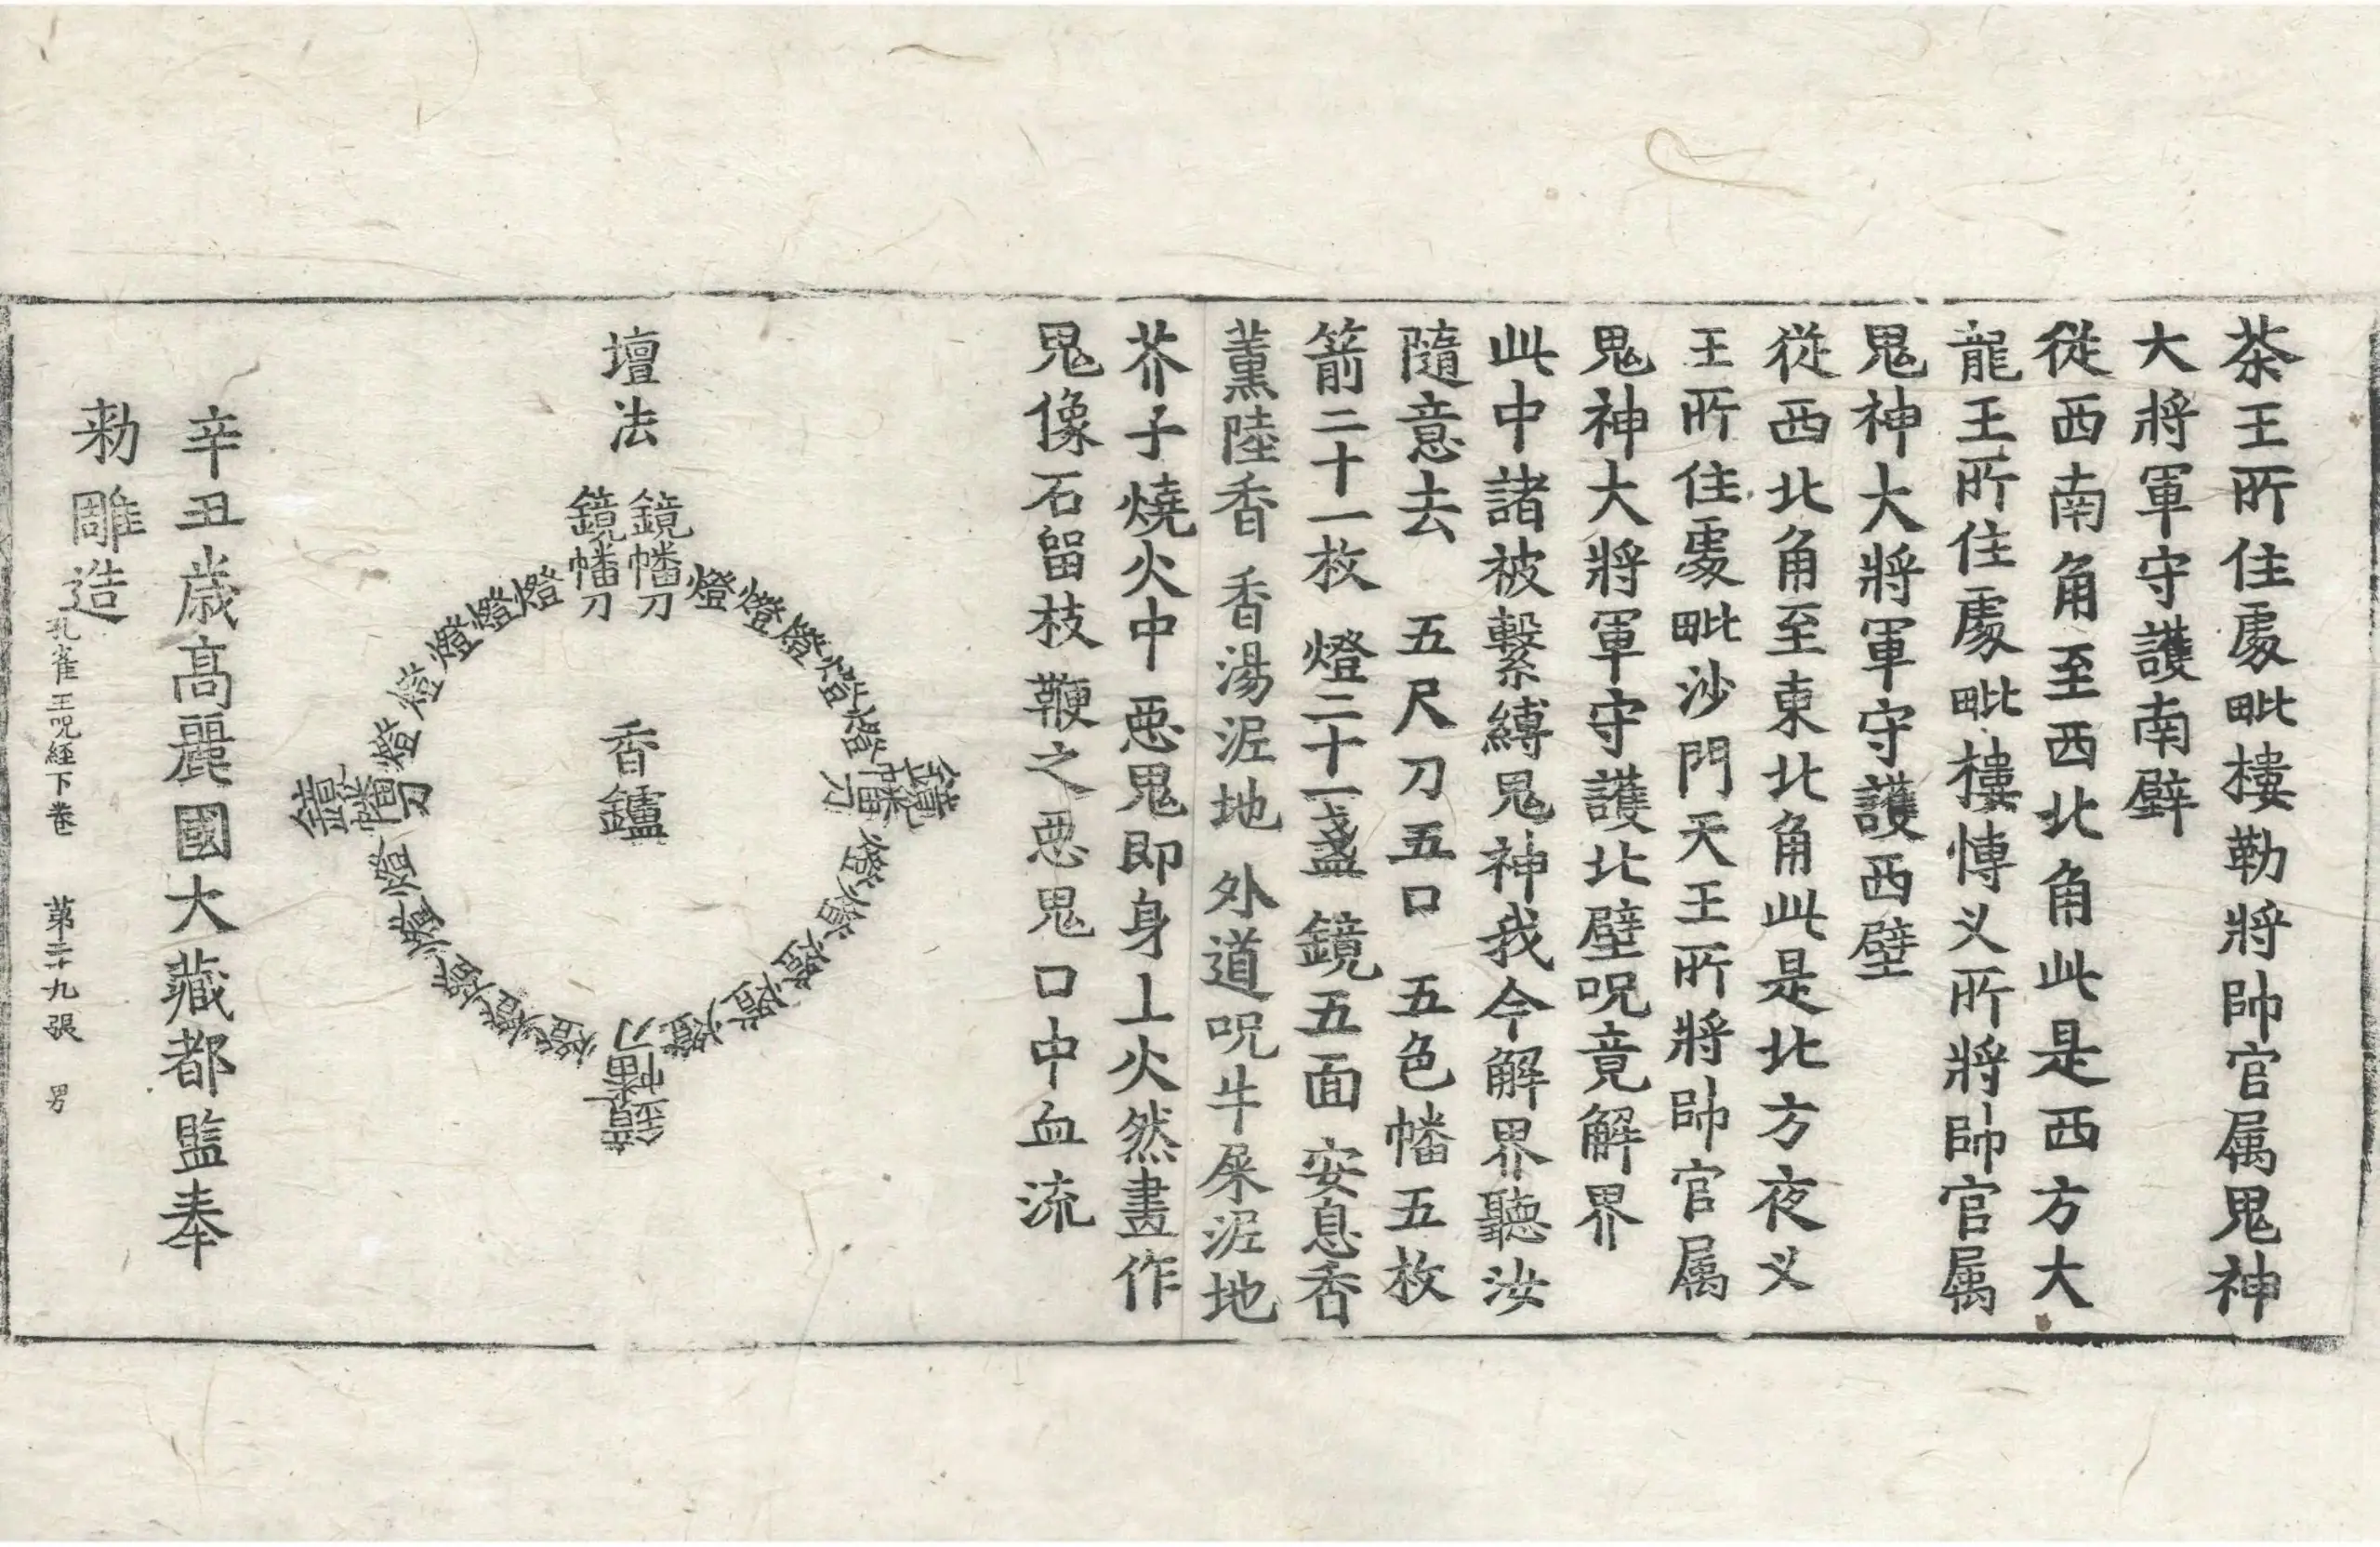 茶王所住處毗樓勒將帥官属鬼神
大將軍守護南壁
從西南角至西北角此是西方大
龍王所住處毗樓愽义所將帥官属
鬼神大將軍守護西壁
從西北角至東北角此是北方夜义
王所住處毗沙門天王所將帥官属
鬼神大將軍守護北壁呪竟解界
此中諸被繫縛鬼神我今解界聽汝
隨意去 五尺刀五口 五色幡五枚
箭二十一枚 燈二十一盞 鏡五面 安息香
薰陸香 香湯泥地 外道呪牛屎泥地
芥子燒火中 惡鬼即身上火然畫作
鬼像石留枝鞭之惡鬼口中血流
壇法
鏡幡刀
鏡幡刀
燈燈燈燈燈
鏡幡刀
燈燈燈燈燈
鏡幡刀
燈燈燈燈燈
鏡幡刀
燈燈燈燈燈
香鑪
辛丑歲高麗國大藏都監奉
勑雕造
孔雀王呪經下卷 第二十九張 男